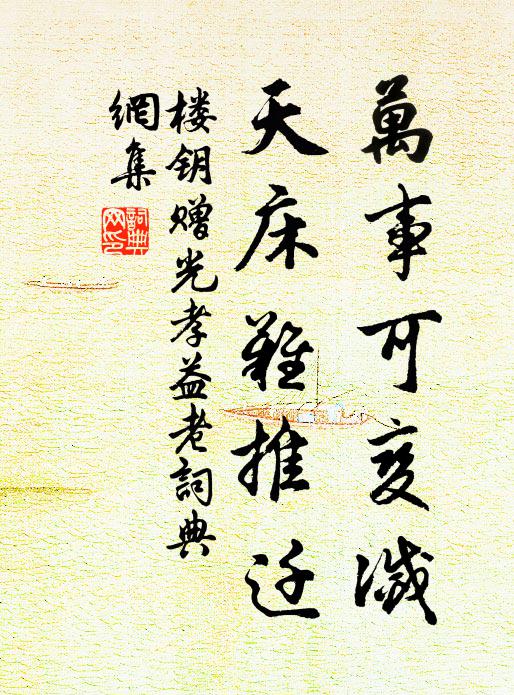 萬事可变滅
天床難推迁
楼钥赠光孝益老詞典
網集
詞典
网印